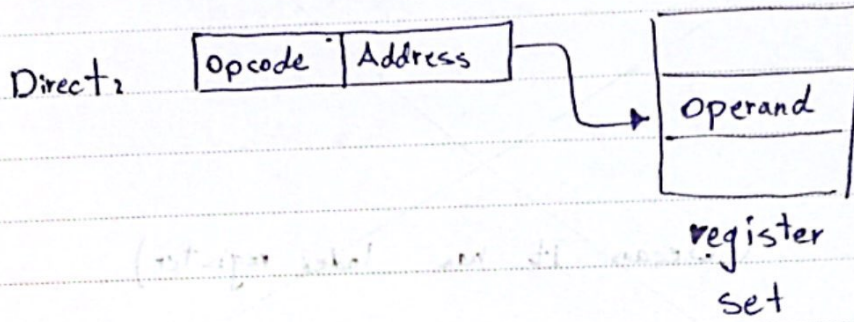 Direct:
Opcode Address
Operand
register
set